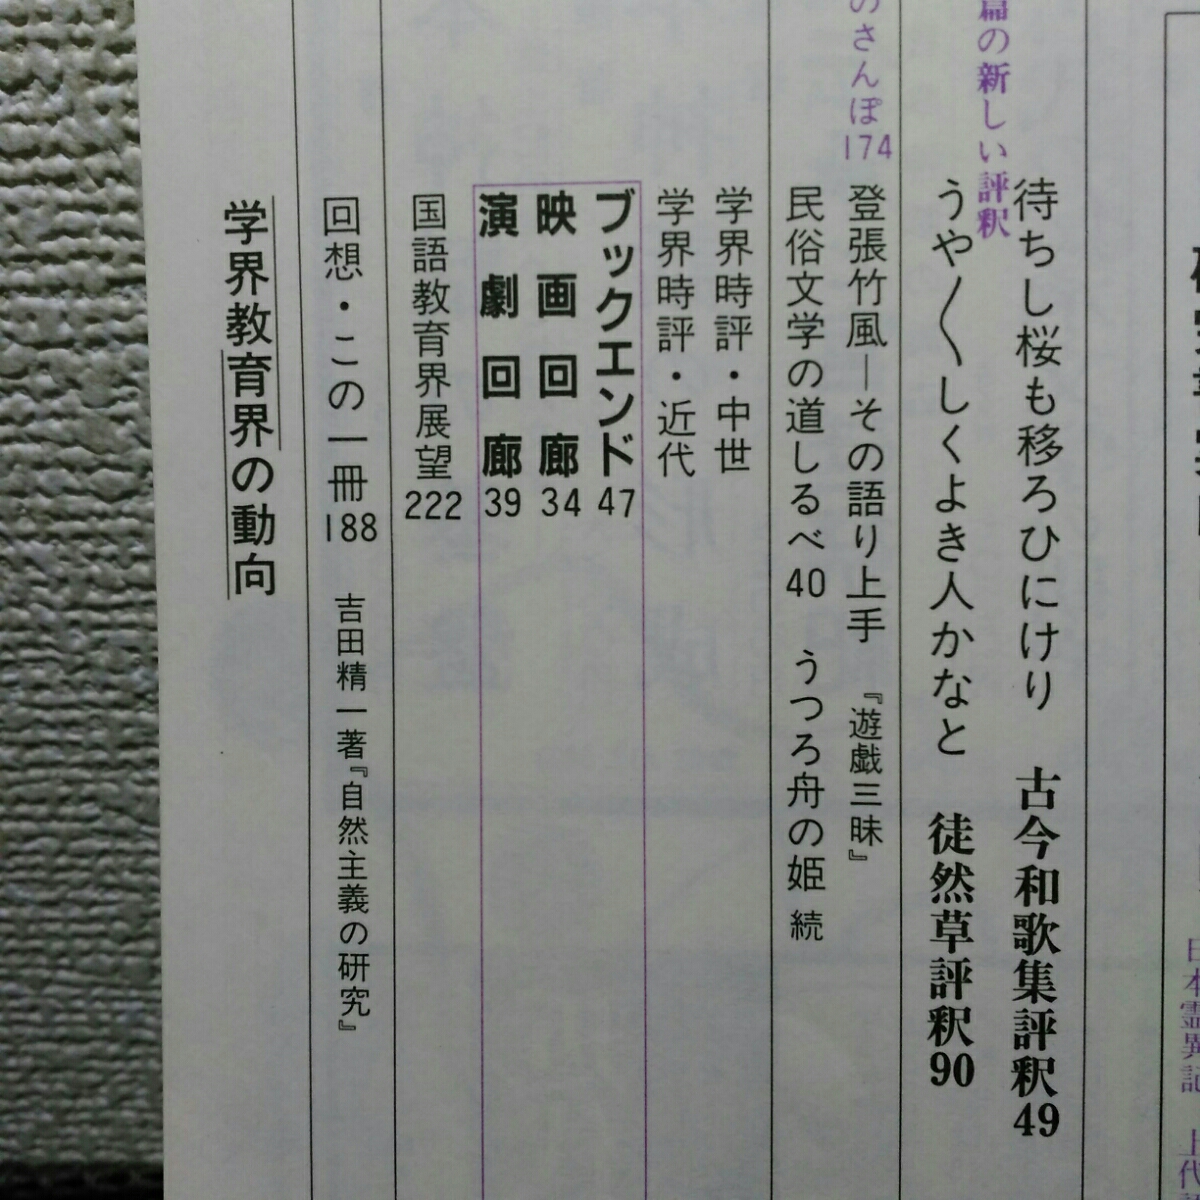 日本霊異記 上代
待ちし桜も移ろひにけり 古今和歌集評釈49
の新しい評釈
うや〳〵しくよき人かなと 徒然草評釈90
のさんぽ174
登張竹風―その語り上手 『遊戯三昧』
民俗文学の道しるべ40 うつろ舟の姫 続
学界時評・中世
学界時評・近代
ブックエンド47
映画回廊34
演劇回廊39
国語教育界展望222
回想・この一冊188 吉田精一著『自然主義の研究』
学界教育界の動向